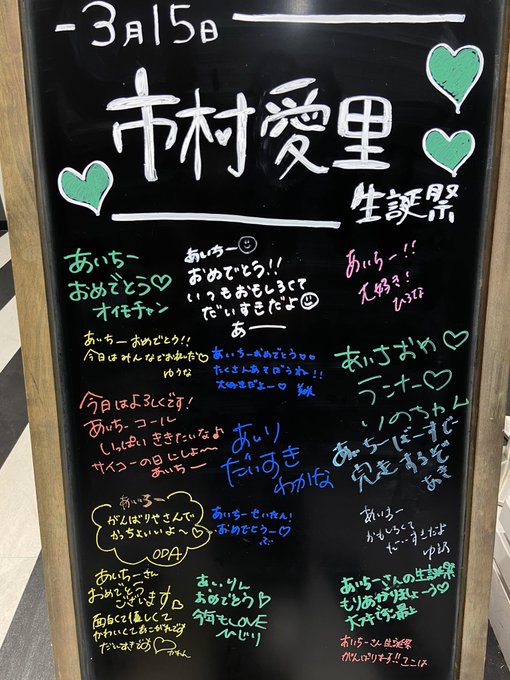 3月15日
市村愛里
生誕祭
あいちー
おめでとう♡
オイモチャン
あいちー
おめでとう!!
いつもおもしろくて
だいすきだよ
あー
あいちー!!
大好き!
ひろな
あいちーおめでとう!!
今日はみんなでお祝いだ♡
ゆうな
あいちーおめでとう♡♡
たくさんあそぼうね!!
大好きだよー♡
あいちおめ♡
ランナー♡
りのちゃん
今日はよろしくです!
あいちーコール
いっぱいききたいなよ
サイコーの日にしよ〜
あいちー
あいり
だいすき
わかな
あいちーばーすでー
完走するぞ
あき
がんばりやさんで
かっちょいいよ〜
ODA
あいちーせいたん!
おめでとうー♡
ぶ
おもしろくて
だいすきだよ
あいちーさん
おめでとう
ございます
面白くて優しくて
かわいくてあこがれです
だいすきです
かれん
あいりん
おめでとう♡
今年もLOVE
ひじり
あいちーさんの生誕祭
もりあがりましょー♡
大スキです最上
あいちーさん生誕祭
がんばります!!ここは